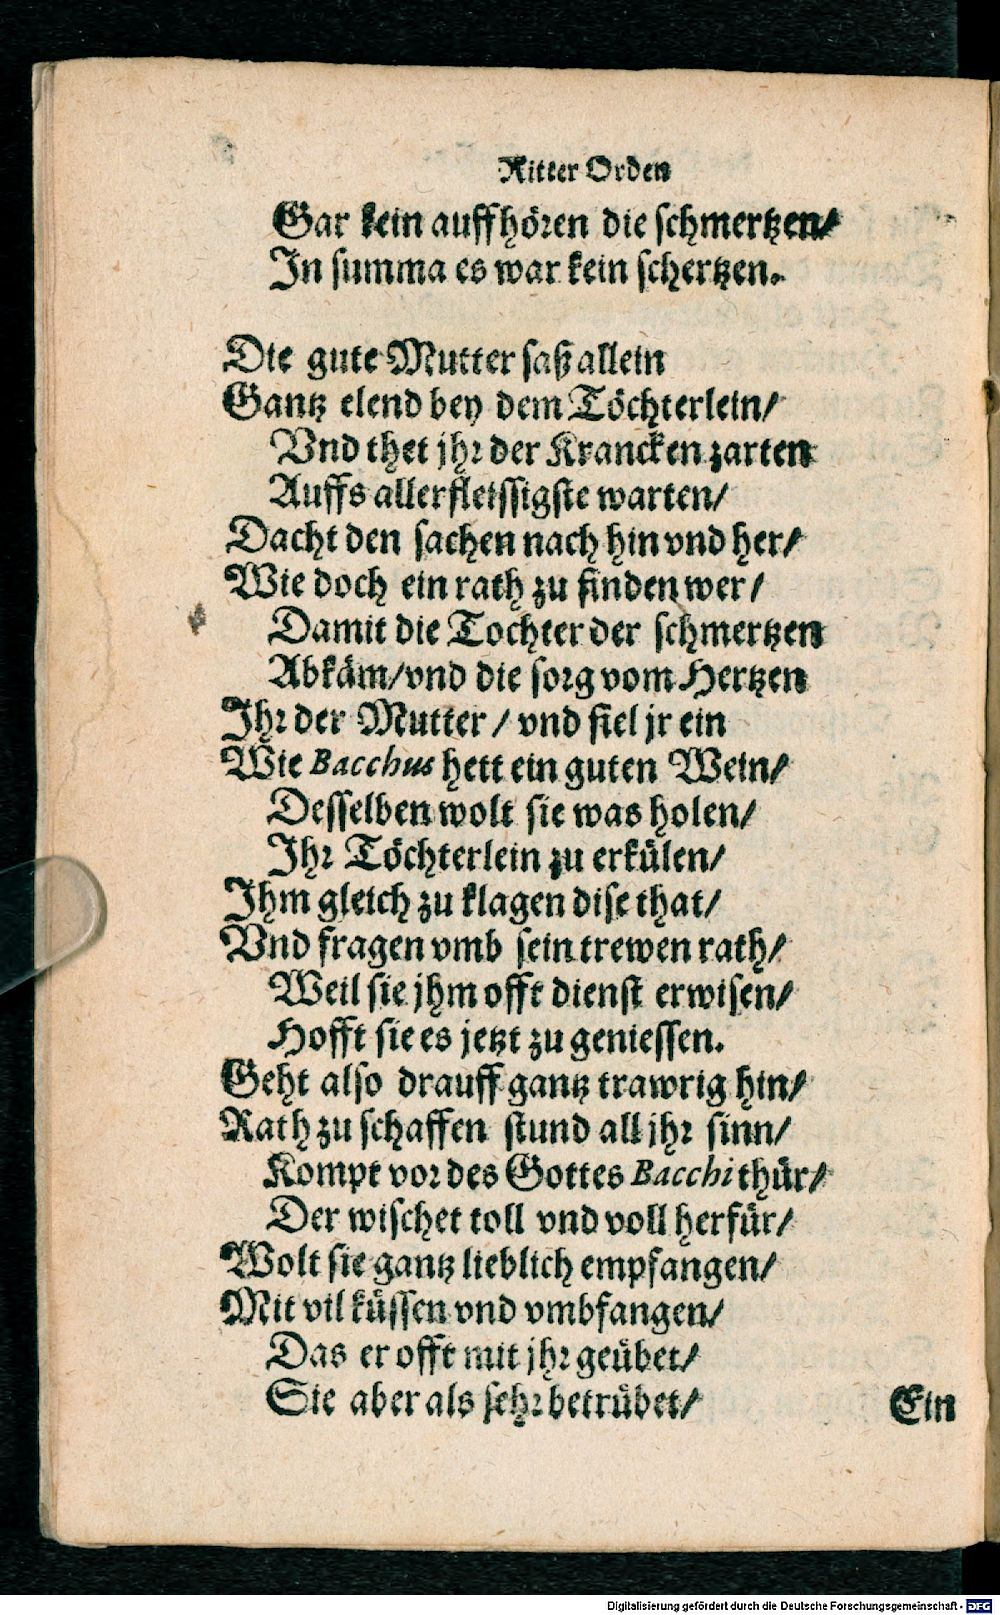 Ritter Orden
Gar kein auffhören die schmertzen/
In summa es war kein schertzen.
Die gute Mutter saß allein
Gantz elend bey dem Töchterlein/
Vnd thet jhr der Krancken zarten
Auffs allerfleissigste warten/
Dacht den sachen nach hin vnd her/
Wie doch ein rath zu finden wer/
Damit die Tochter der schmertzen
Abkäm/vnd die sorg vom Hertzen
Ihr der Mutter / vnd fiel jr ein
Wie Bacchus hett ein guten Wein/
Desselben wolt sie was holen/
Ihr Töchterlein zu erkülen/
Ihm gleich zu klagen dise that/
Vnd fragen vmb sein trewen rath/
Weil sie jhm offt dienst erwisen/
Hofft sie es jetzt zu geniessen.
Geht also drauff gantz trawrig hin/
Rath zu schaffen stund all jhr sinn/
Kompt vor des Gottes Bacchi thür/
Der wischet toll vnd voll herfür/
Wolt sie gantz lieblich empfangen/
Mit vil küssen vnd vmbfangen/
Das er offt mit jhr geübet/
Sie aber als sehr betrübet/
Ein
Digitalisierung gefördert durch die Deutsche Forschungsgemeinschaft - DFG